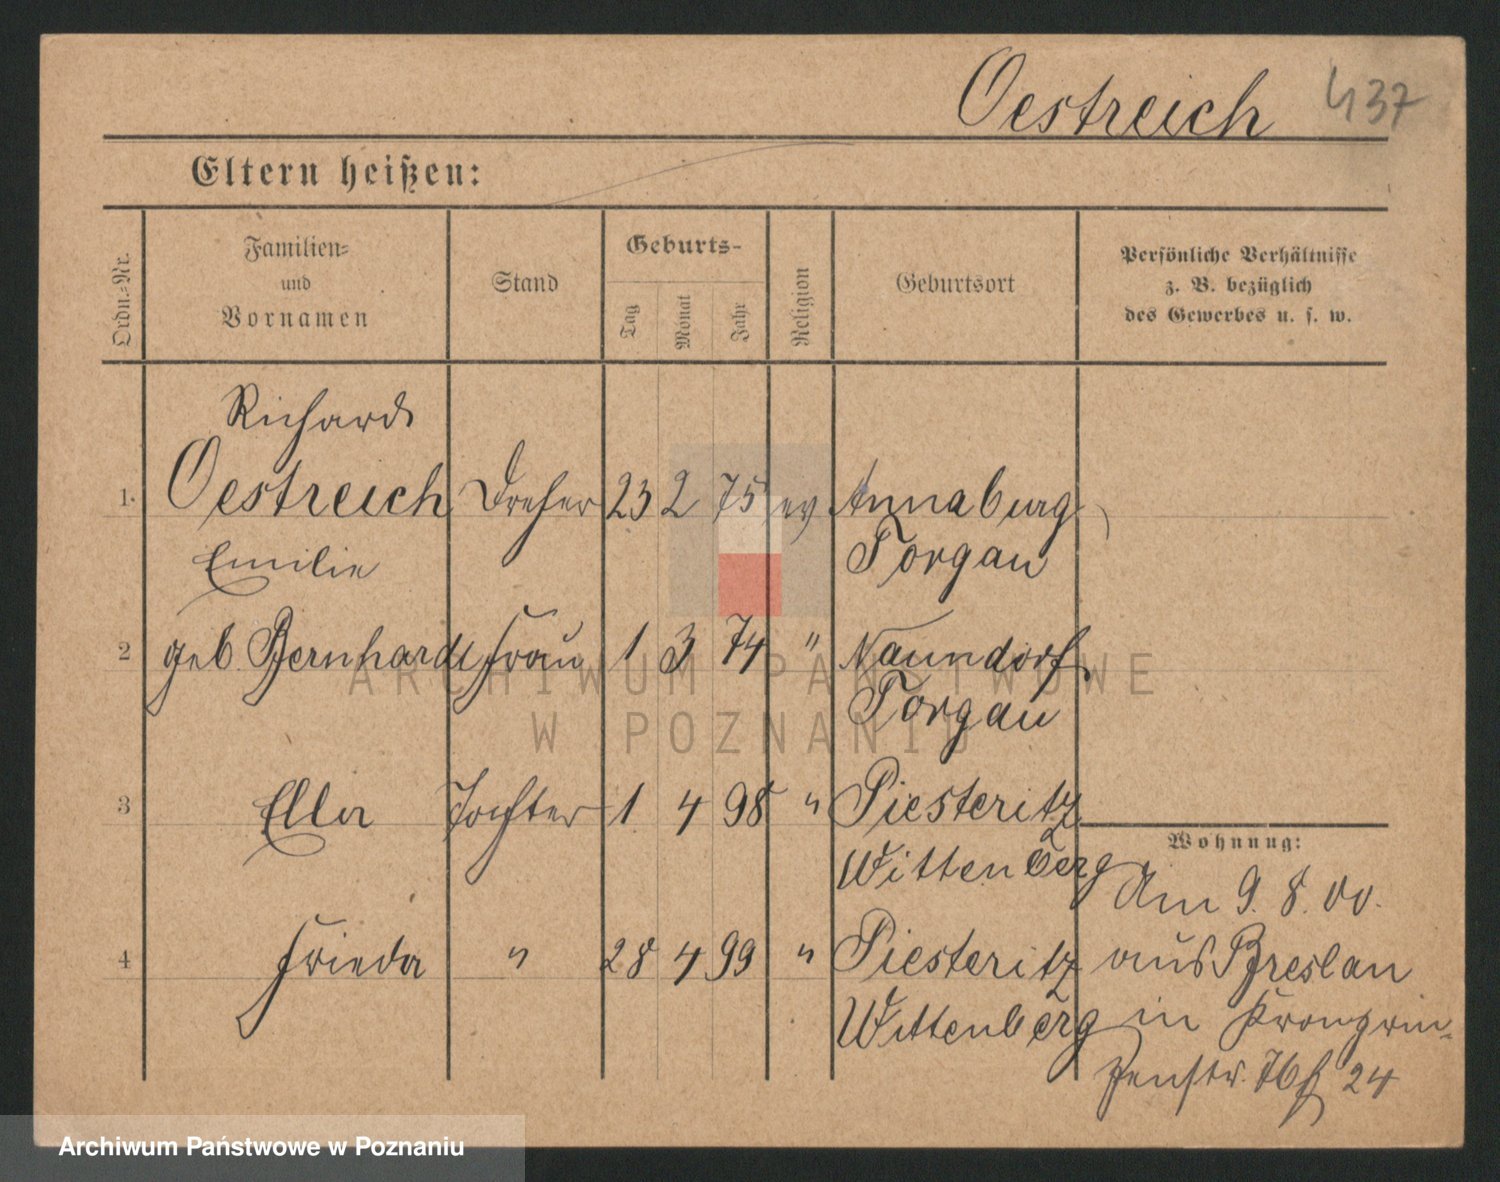 Oestreich 437
Eltern heißen:
Ordn.-Nr.
Familien-
und
Vornamen
Stand
Geburts-
Tag
Monat
Jahr
Religion
Geburtsort
Persönliche Verhältnisse
z. B. bezüglich
des Gewerbes u. s. w.
Richard
1. Oestreich Dreher 23 2 75 ev Annaburg
Emilie Torgau
2 geb Bernhardt Frau 1 3 74 " Naundorf
Torgau
3 Ella Tochter 1 4 98 " Piesteritz
Wittenberg
4 Frieda " 28 4 99 " Piesteritz
Wittenberg
Wohnung:
Am 9. 8. 00.
aus Breslau
in Kronprin-
zenstr. 76 24
ARCHIWUM PAŃSTWOWE
W POZNANIU
Archiwum Państwowe w Poznaniu